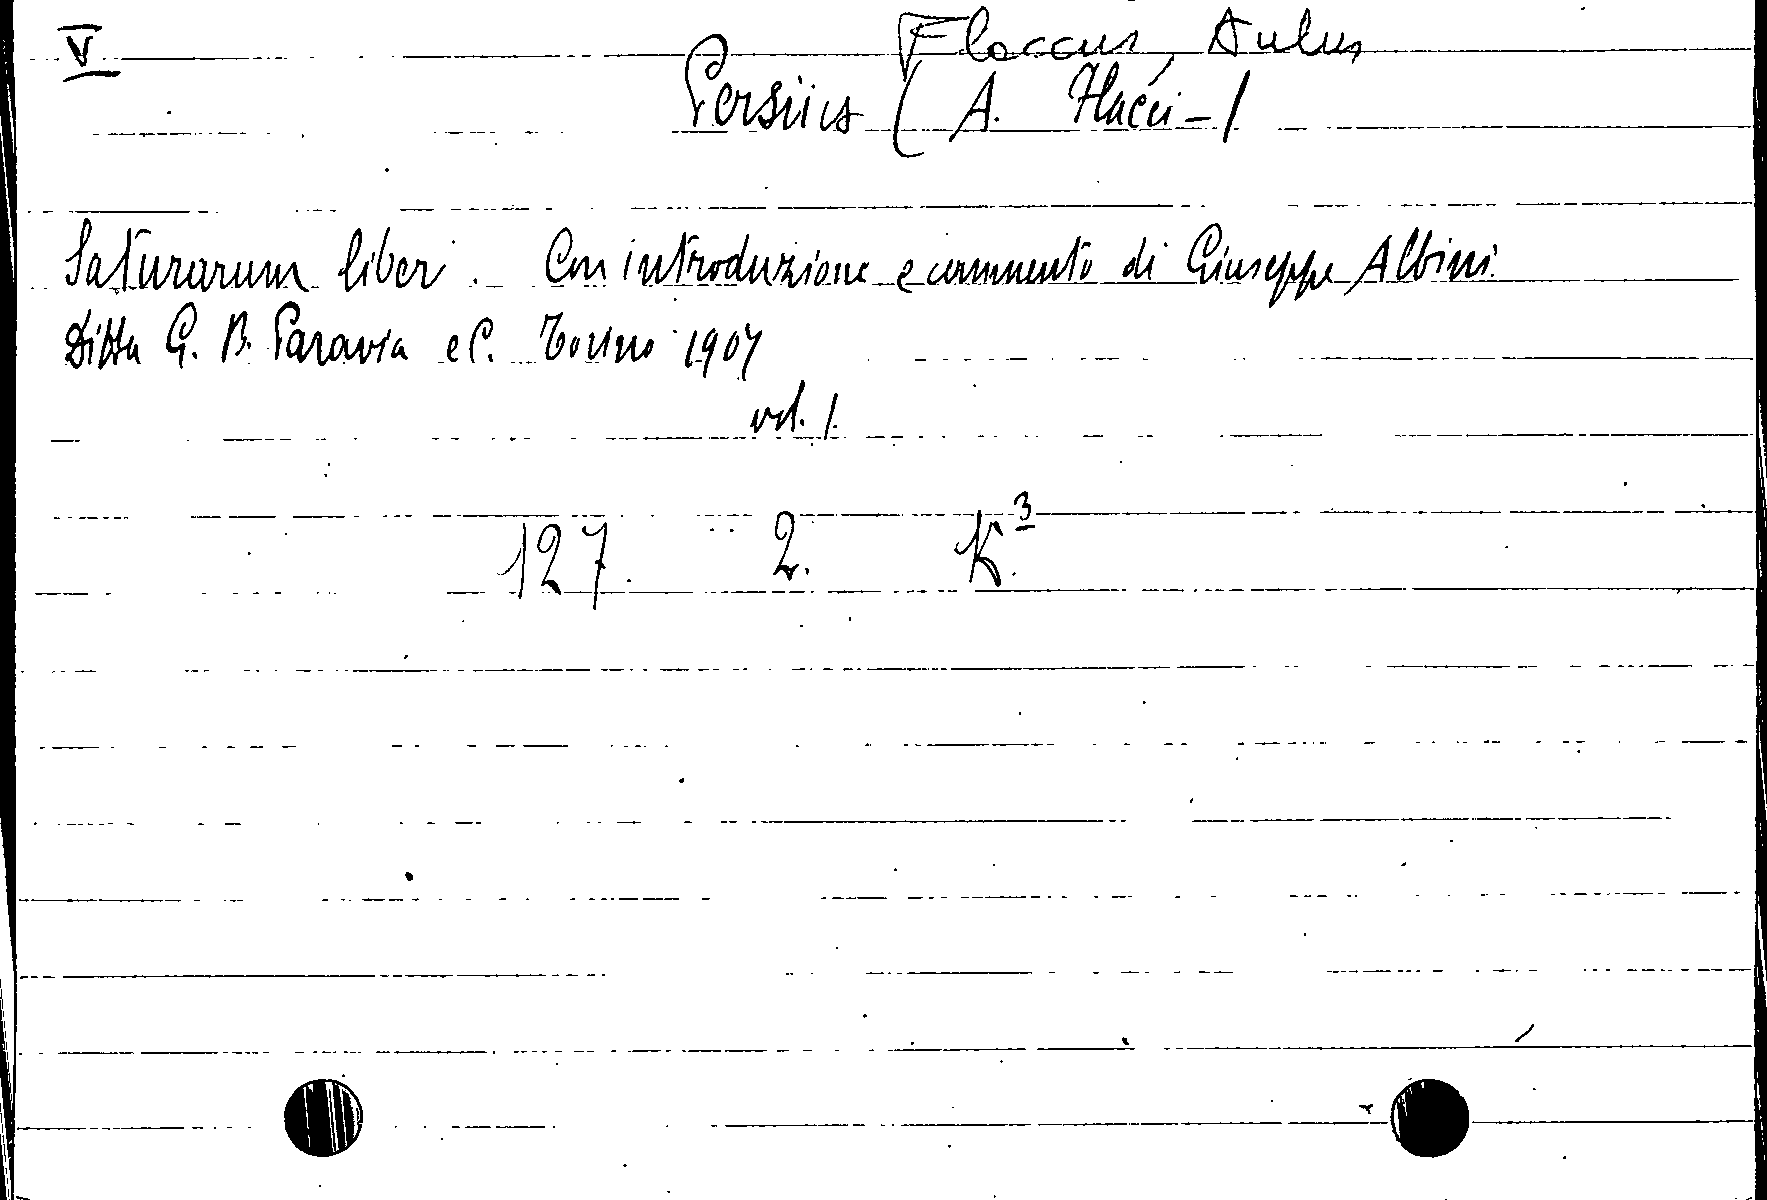 V
Flaccus, Aulus
Persius (A. Flacci-)
Saturarum liber. Con introduzione e commento di Giuseppe Albini.
Ditta G. B. Paravia e C. Torino 1907
vol. 1.
127. 2. K.3